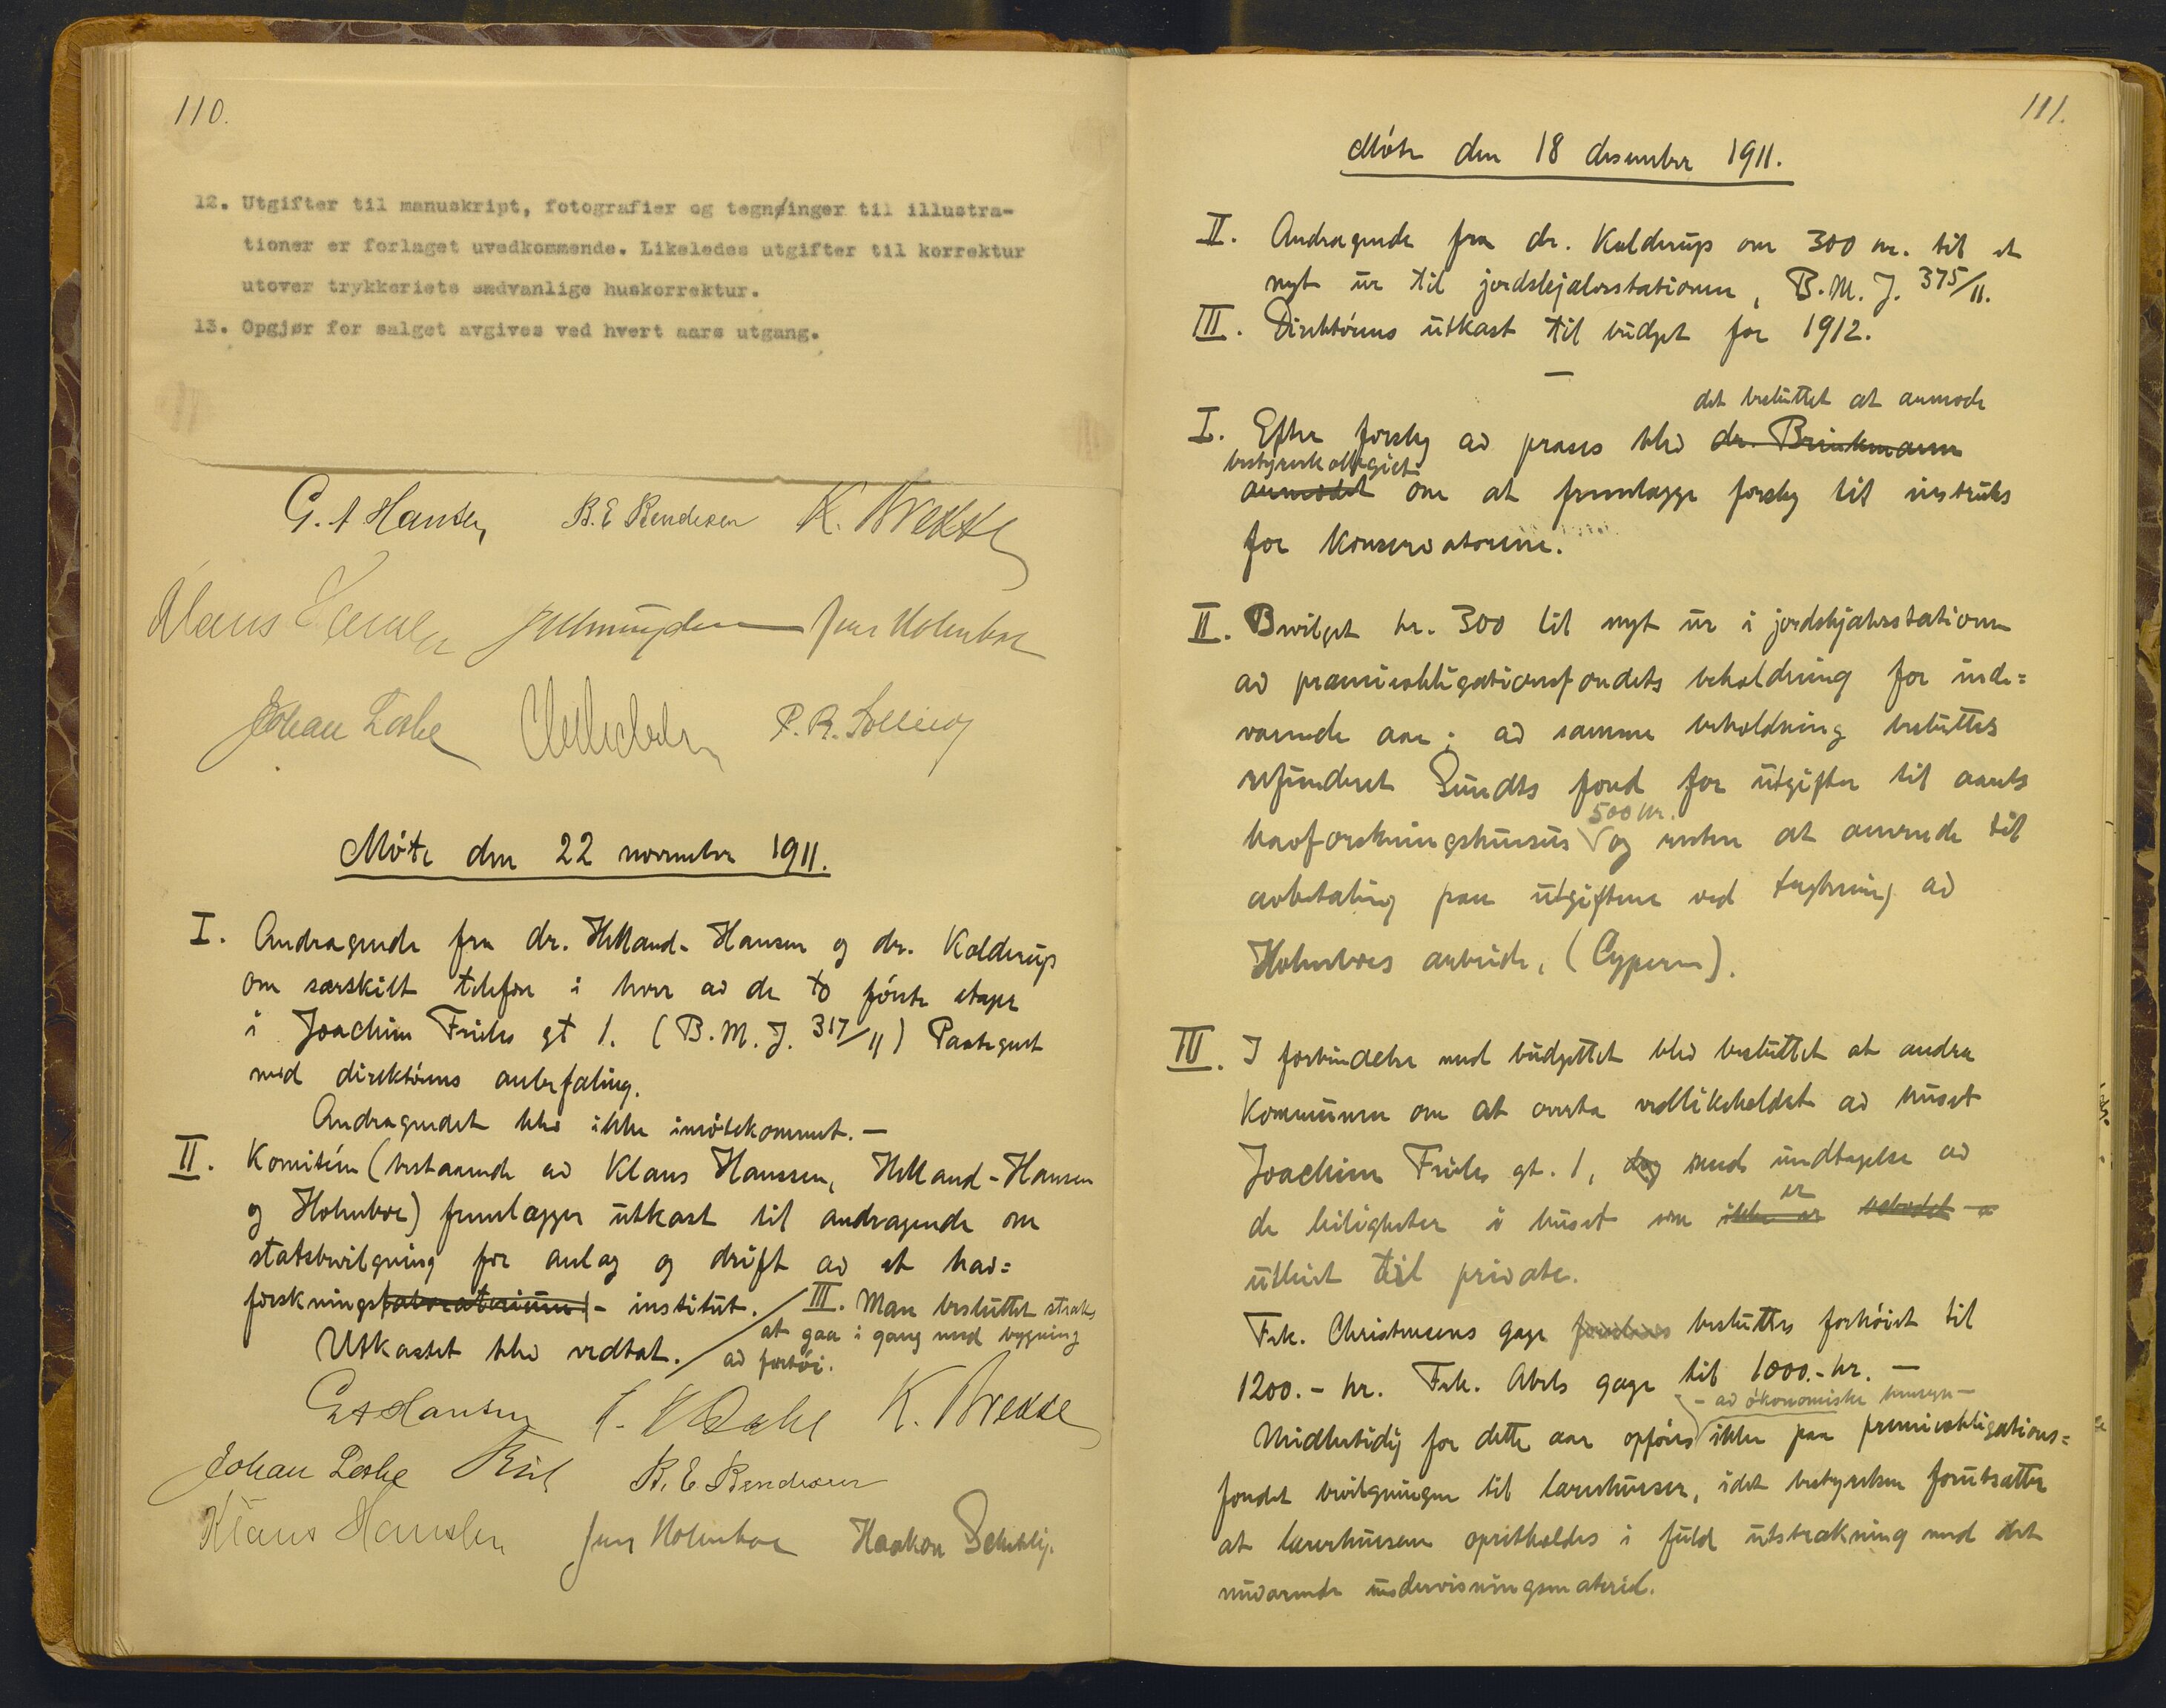 110.
12. Utgifter til manuskript, fotografier og tegninger til illustra-
tioner er forlaget uvedkommende. Likeledes utgifter til korrektur
utover trykkeriets sædvanlige huskorrektur.
13. Opgjør for salget avgives ved hvert aars utgang.
G. A Hansen B. E Bendixen K. Brekke
Klaus Hanssen Jens Holmboe
Johan Lothe P. R. Sollied
Møte den 22 november 1911.
I. Andragende fra dr. Helland-Hansen og dr. Kolderup
om særskilt telefon i hver av de to første etager
i Joachim Frieles gt 1. (B. M. J. 317/11) Paategnet
med direktørens anbefaling.
Andragendet blev ikke imøtekommet. —
II. Komitéen (bestaaende av Klaus Hanssen, Helland-Hansen
og Holmboe) fremlægger utkast til andragende om
statsbevilgning for anlæg og drift av et hav=
forsknings laboratorium - institut. / III. Man besluttet straks
at gaa i gang med bygning
Utkastet blev vedtat. / av fartøi.
G A Hansen K. Brekke
Johan Lothe B. E Bendixen
Klaus Hanssen Jens Holmboe Haakon Schetelig.
111.
Møte den 18 desember 1911.
II. Andragende fra dr. Kolderup om 300 kr. til et
nyt ur til jordskjælvsstationen, B. M. J. 375/11.
III. Direktørens utkast til budget for 1912.
—
det besluttet at anmode
I. Efter forslag av præses blev dr. Brinkmann
bestyrerkollegiet
anmodet om at fremlægge forslag til instruks
for konservatorene.
II. Bevilget kr. 300 til nyt ur i jordskjælvsstationen
av præmieobligationsfondets beholdning for inde=
værende aar; av samme beholdning besluttes
refunderet Sundts fond for utgifter til aarets
500 kr.
havforskningskursus og resten at anvende til
avbetaling paa utgiftene ved trykning av
Holmboes arbeide, (Cypern).
III. I forbindelse med budgettet blev besluttet at andra
kommunen om at overta vedlikeholdet av huset
Joachim Frieles gt. 1, dog med undtagelse av
er
de leiligheter i huset som ikke er bebodet
utleiet til private.
Frk. Christensens gage besluttes forhøiet til
1200.- kr. Frk. Abels gage til 1000.- kr. —
- av økonomiske hensyn -
Midlertidig for dette aar opføres ikke paa premieobligations=
fondet bevilgningen til lærerkurser, idet bestyrelsen forutsætter
at lærerkursene opretholdes i fuld utstrækning med det
nuværende undervisningsmateriel.